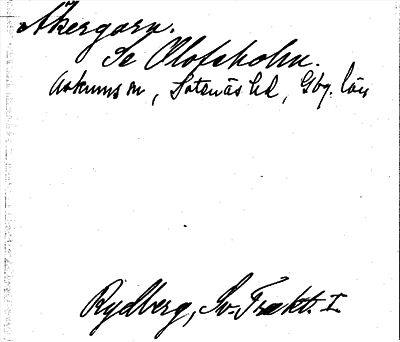 Åkergarn.
Se Olofsholm.
Askums sn, Sotenäs hd, Gbg. län
Rydberg, Sv. Trakt. I